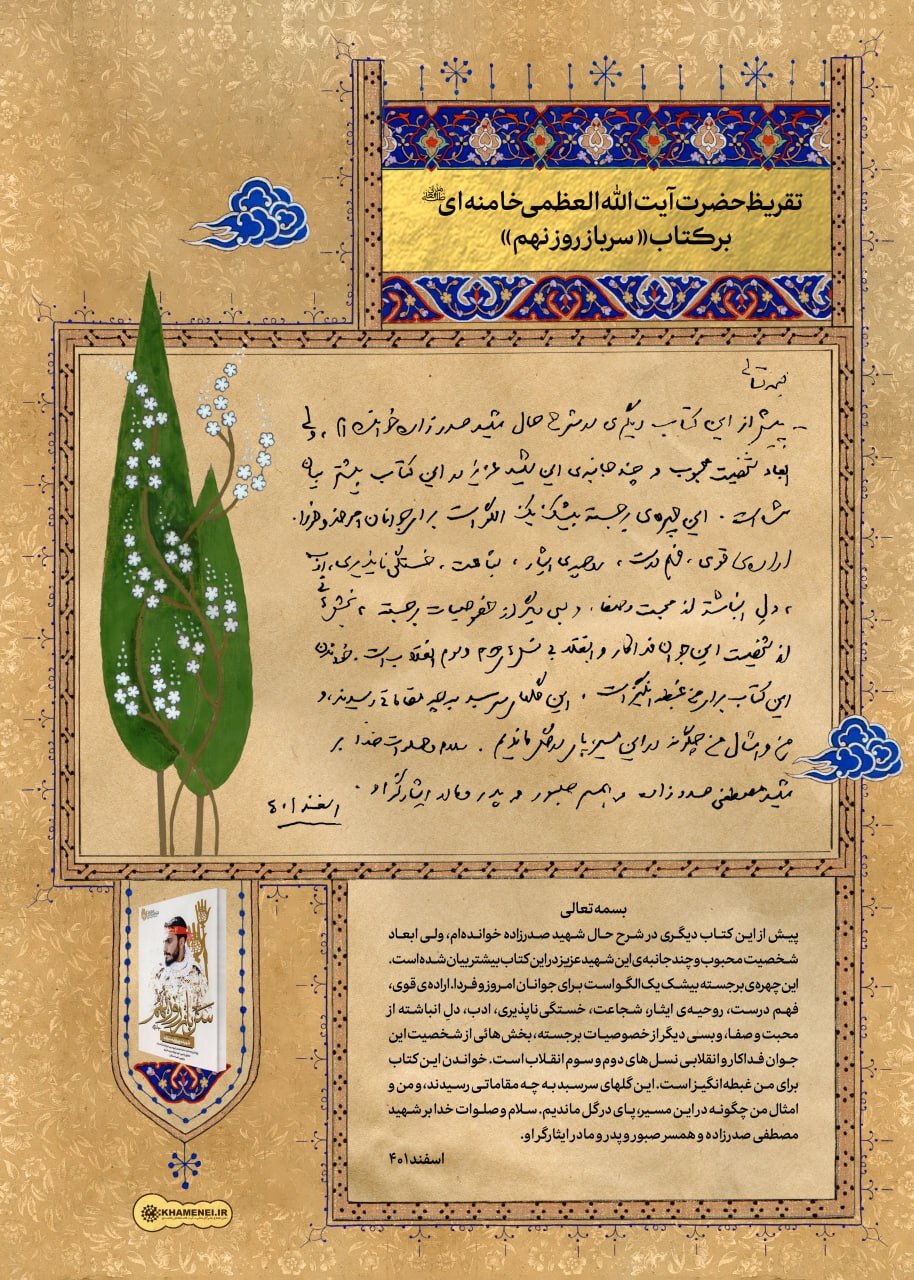 تقریظ حضرت آیت الله العظمی خامنه ای
بر کتاب «سرباز روز نهم»
بسمه تعالی
ـ پیش از این کتاب دیگری در شرح حال شهید صدرزاده خوانده‌ام، ولی
ابعاد شخصیت محبوب و چند جانبه‌ی این شهید عزیز در این کتاب بیشتر بیان
شده است. این چهره‌ی برجسته بیشک یک الگو است برای جوانان امروز و فردا.
اراده‌ی قوی، فهم درست، روحیه‌ی ایثار، شجاعت، خستگی ناپذیری، ادب
، دل انباشته از محبت و صفا، و بسی دیگر از خصوصیات برجسته، بخش هائی
از شخصیت این جوان فداکار و انقلابی نسل های دوم و سوم انقلاب است. خواندن
این کتاب برای من غبطه انگیز است. این گلهای سرسبد به چه مقاماتی رسیدند، و
من و امثال من چگونه در این مسیر، پای در گل ماندیم. سلام و صلوات خدا بر
شهید مصطفی صدرزاده و همسر صبور و پدر و مادر ایثارگر او.
اسفند ۴۰۱
بسمه تعالی
پیش از این کتاب دیگری در شرح حال شهید صدرزاده خوانده‌ام، ولی ابعاد
شخصیت محبوب و چندجانبه‌ی این شهید عزیز در این کتاب بیشتر بیان شده است.
این چهره‌ی برجسته بیشک یک الگو است برای جوانان امروز و فردا. اراده‌ی قوی،
فهم درست، روحیه‌ی ایثار، شجاعت، خستگی ناپذیری، ادب، دل انباشته از
محبت و صفا، و بسی دیگر از خصوصیات برجسته، بخش هائی از شخصیت این
جوان فداکار و انقلابی نسل های دوم و سوم انقلاب است. خواندن این کتاب
برای من غبطه انگیز است. این گلهای سرسبد به چه مقاماتی رسیدند، و من و
امثال من چگونه در این مسیر، پای در گل ماندیم. سلام و صلوات خدا بر شهید
مصطفی صدرزاده و همسر صبور و پدر و مادر ایثارگر او.
اسفند ۴۰۱
سرباز روز نهم
KHAMENEI.IR